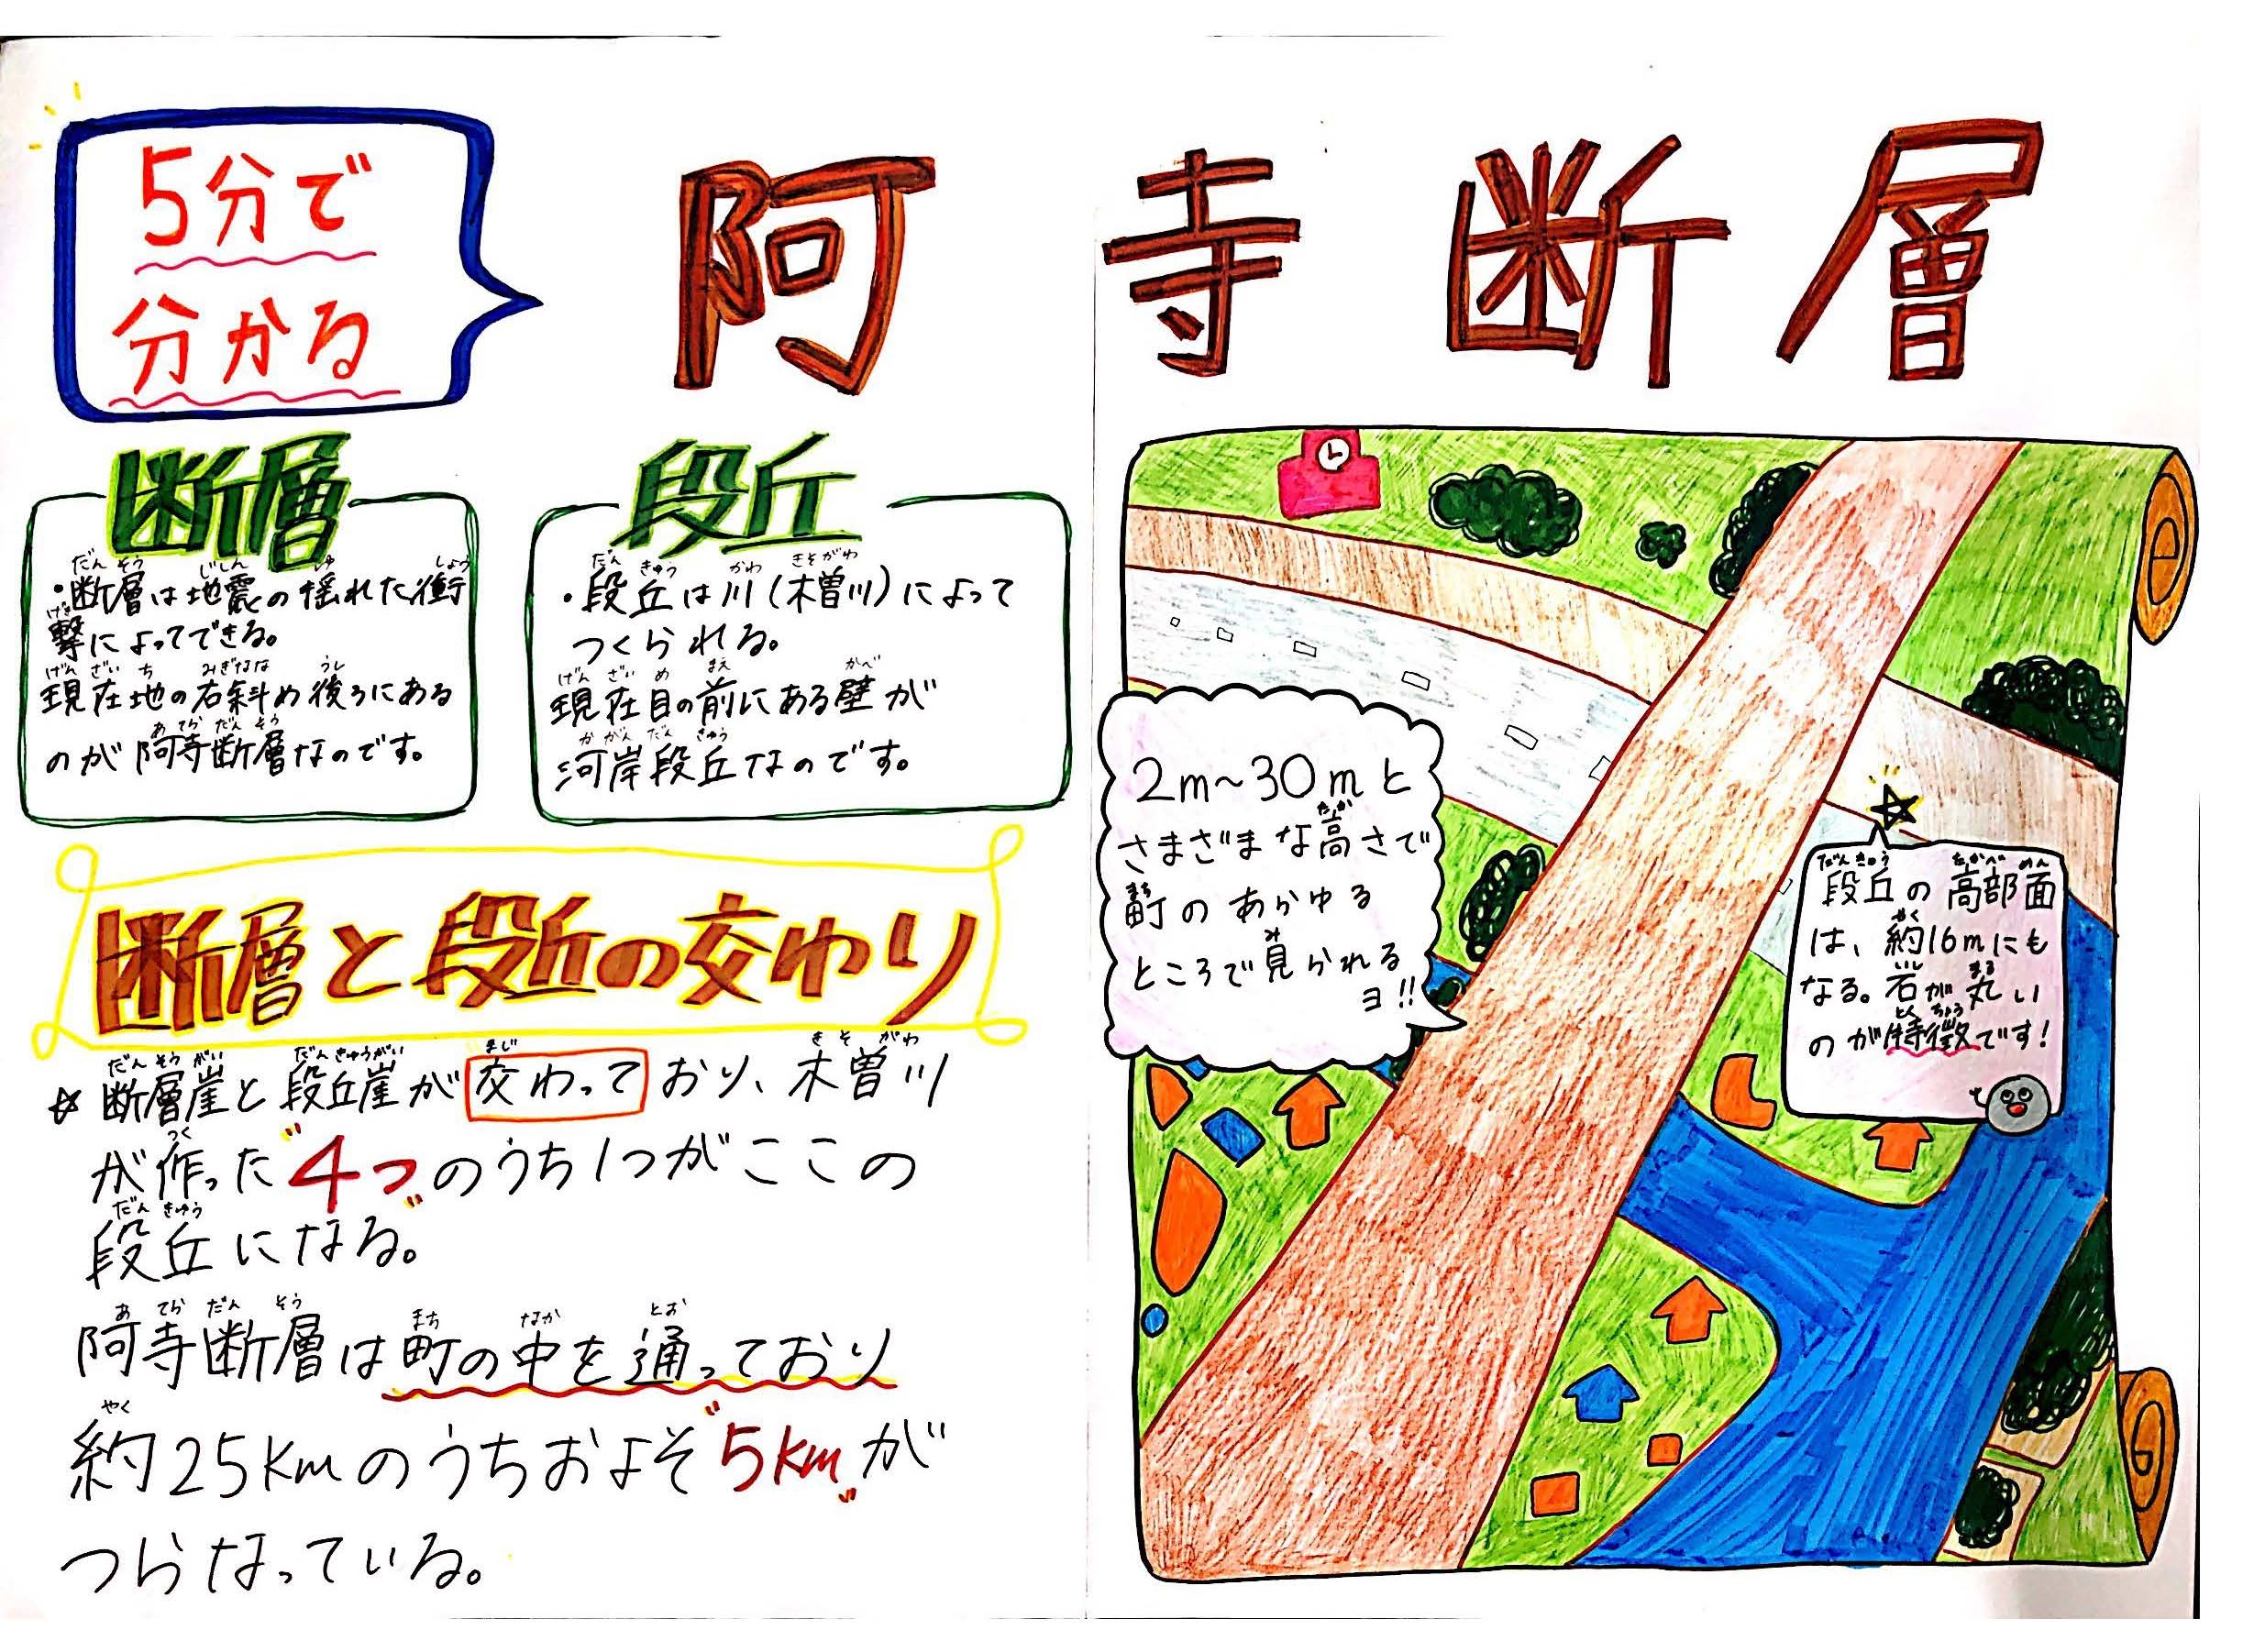 5分で
分かる
阿寺断層
断層
・断層は地震の揺れた衝
撃によってできる。
現在地の右斜め後ろにある
のが阿寺断層なのです。
段丘
・段丘は川(木曽川)によって
つくられる。
現在目の前にある壁が
河岸段丘なのです。
断層と段丘の交わり
☆断層崖と段丘崖が交わっており、木曽川
が作った"4つ"のうち1つがここの
段丘になる。
阿寺断層は町の中を通っており
約25kmのうちおよそ"5km"が
つらなっている。
2m~30mと
さまざまな高さで
町のあらゆる
ところで見られる
ヨ!!
段丘の高部面
は、約16mにも
なる。岩が丸い
のが特徴です!